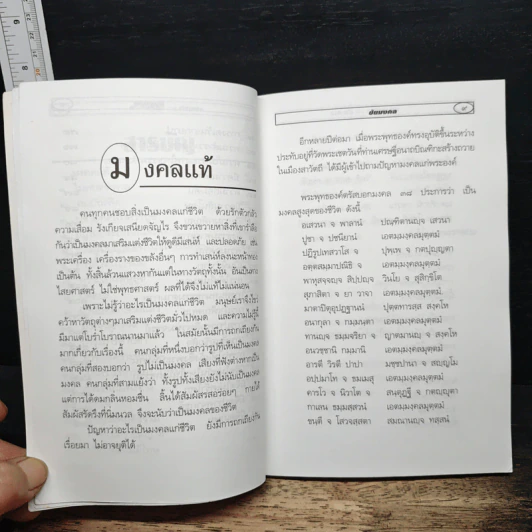 มงคลแท้
คนทุกคนชอบสิ่งเป็นมงคลแก่ชีวิต ด้วยรักตัวกลัว
ความเสื่อม รังเกียจเสนียดจัญไร จึงชวนขวายหาสิ่งที่เขาร่ำลือ
กันว่าเป็นมงคลมาเสริมแต่งชีวิตให้ดูดีมีเสน่ห์ และปลอดภัย เช่น
พระเครื่อง เครื่องรางของขลังอื่นๆ การทำเสน่ห์ลงนะหน้าทอง
เป็นต้น ทั้งสิ้นล้วนแสวงหากันแต่ในทางวัตถุทั้งนั้น อันเป็นทาง
ไสยศาสตร์ ไม่ใช่พุทธศาสตร์ ผลที่ได้จึงไม่แท้ไม่แน่นอน
เพราะไม่รู้ว่าอะไรเป็นมงคลแก่ชีวิต มนุษย์เราจึงไขว่
คว้าหาวัตถุต่างๆมาเสริมแต่งชีวิตมั่วไปหมด และความไม่รู้นี้
มีมาแต่โบร่ำโบราณนานมาแล้ว ในสมัยนั้นมีการถกเถียงกัน
มากเกี่ยวกับเรื่องนี้ คนกลุ่มที่หนึ่งบอกว่ารูปที่เห็นเป็นมงคล
คนกลุ่มที่สองบอกว่า รูปไม่เป็นมงคล เสียงที่ฟังต่างหากเป็น
มงคล คนกลุ่มที่สามแย้งว่า ทั้งรูปทั้งเสียงยังไม่นับเป็นมงคล
แต่การได้ดมกลิ่นหอมชื่น ลิ้นได้สัมผัสรสอร่อยๆ กายได้
สัมผัสรัดรึงที่นิ่มนวล จึงจะนับว่าเป็นมงคลของชีวิต
ปัญหาว่าอะไรเป็นมงคลแก่ชีวิต ยังมีการถกเถียงกัน
เรื่อยมา ไม่อาจยุติได้
ชัยมงคล
อีกหลายปีต่อมา เมื่อพระพุทธองค์ทรงอุบัติขึ้นระหว่าง
ประทับอยู่ที่วัดพระเชตวันที่ท่านเศรษฐีอนาถบิณฑิกะสร้างถวาย
ในเมืองสาวัตถี ได้มีผู้เข้าไปถามปัญหามงคลแก่พระองค์
พระพุทธองค์ตรัสบอกมงคล ๓๘ ประการว่า เป็น
มงคลสูงสุดของชีวิต ดังนี้
อเสวนา จ พาลานํ ปณฺฑิตานญฺจ เสวนา
ปูชา จ ปูชนียานํ เอตมฺมงคลมุตฺตมํ
ปฏิรูปเทสวาโส จ ปุพฺเพ จ กตปุญฺญตา
อตฺตสมฺมาปณิธิ จ เอตมฺมงคลมุตฺตมํ
พาหุสจฺจญฺจ สิปฺปญฺจ วินโย จ สุสิกฺขิโต
สุภาสิตา จ ยา วาจา เอตมฺมงคลมุตฺตมํ
มาตาปิตุอุปฏฺฐานํ ปุตฺตทารสฺส สงฺคโห
อนากุลา จ กมฺมนฺตา เอตมฺมงคลมุตฺตมํ
ทานญฺจ ธมฺมจริยา จ ญาตกานญฺจ สงฺคโห
อนวชฺชานิ กมฺมานิ เอตมฺมงคลมุตฺตมํ
อารตี วิรตี ปาปา มชฺชปานา จ สญฺญโม
อปฺปมาโท จ ธมฺเมสุ เอตมฺมงคลมุตฺตมํ
คารโว จ นิวาโต จ สนฺตุฏฺฐี จ กตญฺญุตา
กาเลน ธมฺมสฺสวนํ เอตมฺมงคลมุตฺตมํ
ขนฺตี จ โสวจสฺสตา สมณานญฺจ ทสฺสนํ